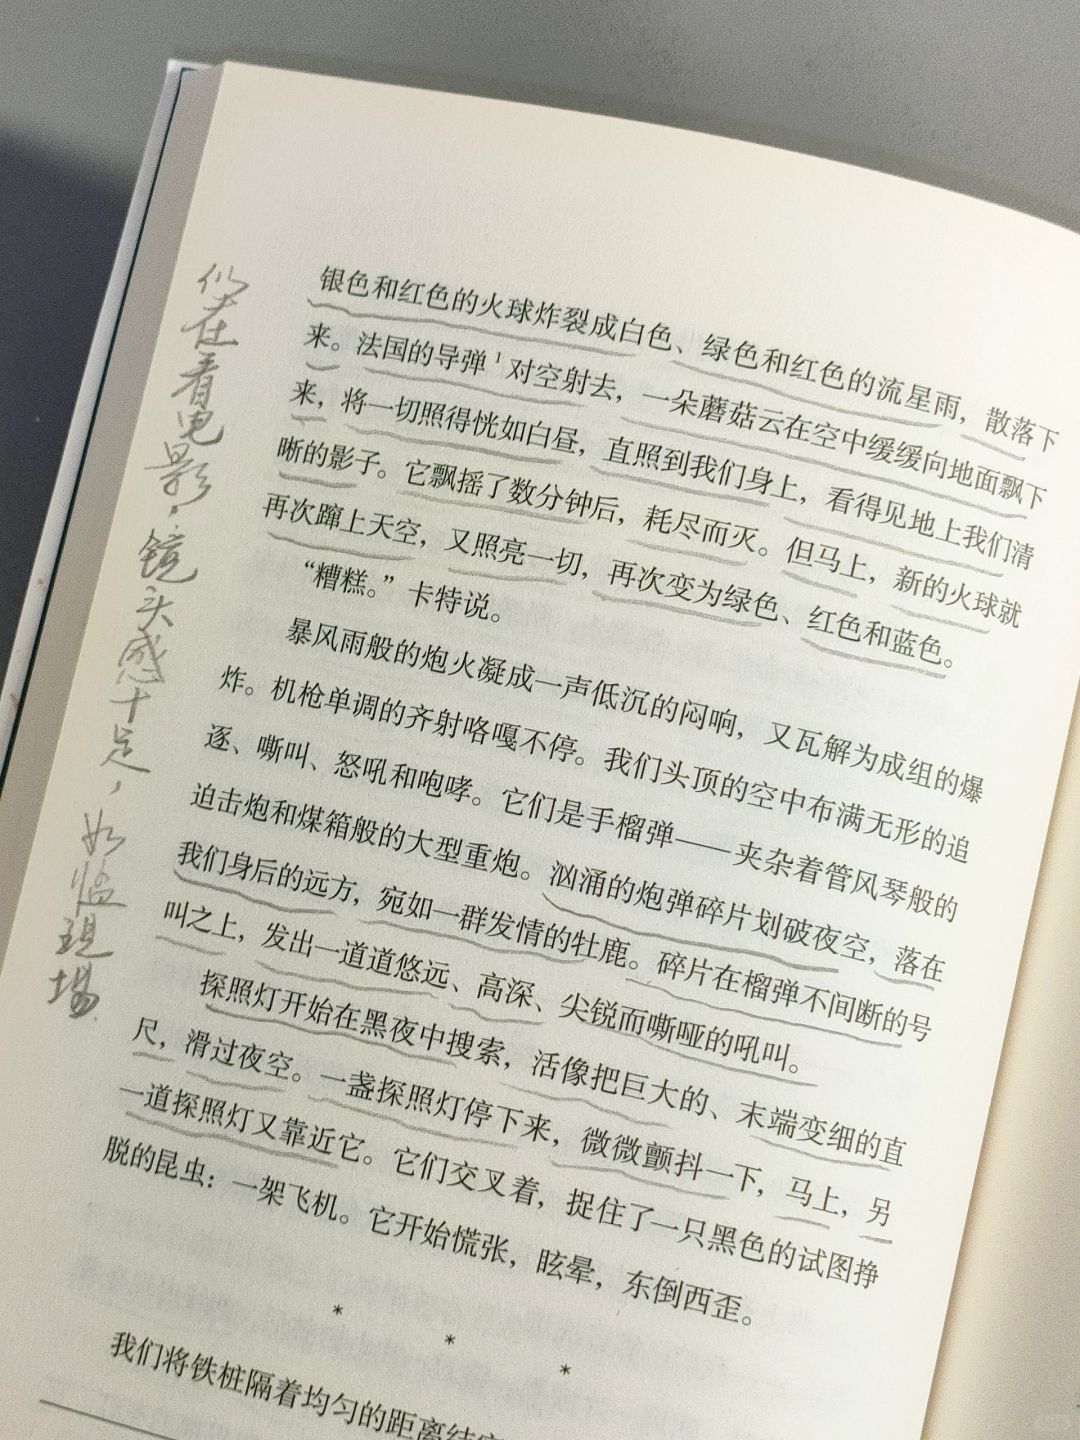 银色和红色的火球炸裂成白色、绿色和红色的流星雨，散落下
来。法国的导弹¹对空射去，一朵蘑菇云在空中缓缓向地面飘下
来，将一切照得恍如白昼，直照到我们身上，看得见地上我们清
晰的影子。它飘摇了数分钟后，耗尽而灭。但马上，新的火球就
再次蹿上天空，又照亮一切，再次变为绿色、红色和蓝色。
“糟糕。”卡特说。
暴风雨般的炮火凝成一声低沉的闷响，又瓦解为成组的爆
炸。机枪单调的齐射咯嘎不停。我们头顶的空中布满无形的追
逐、嘶叫、怒吼和咆哮。它们是手榴弹——夹杂着管风琴般的
迫击炮和煤箱般的大型重炮。汹涌的炮弹碎片划破夜空，落在
我们身后的远方，宛如一群发情的牡鹿。碎片在榴弹不间断的号
叫之上，发出一道道悠远、高深、尖锐而嘶哑的吼叫。
探照灯开始在黑夜中搜索，活像把巨大的、末端变细的直
尺，滑过夜空。一盏探照灯停下来，微微颤抖一下，马上，另
一道探照灯又靠近它。它们交叉着，捉住了一只黑色的试图挣
脱的昆虫：一架飞机。它开始慌张，眩晕，东倒西歪。
* * *
我们将铁桩隔着均匀的距离结
似在看电影，镜头感十足，如临现场